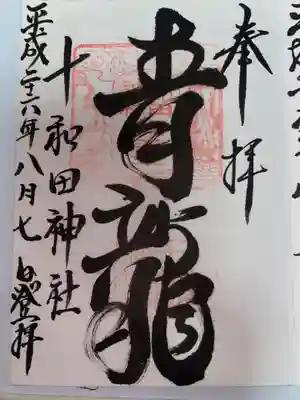 奉拝
青龍
十和田神社
平成二十六年八月七日登拝